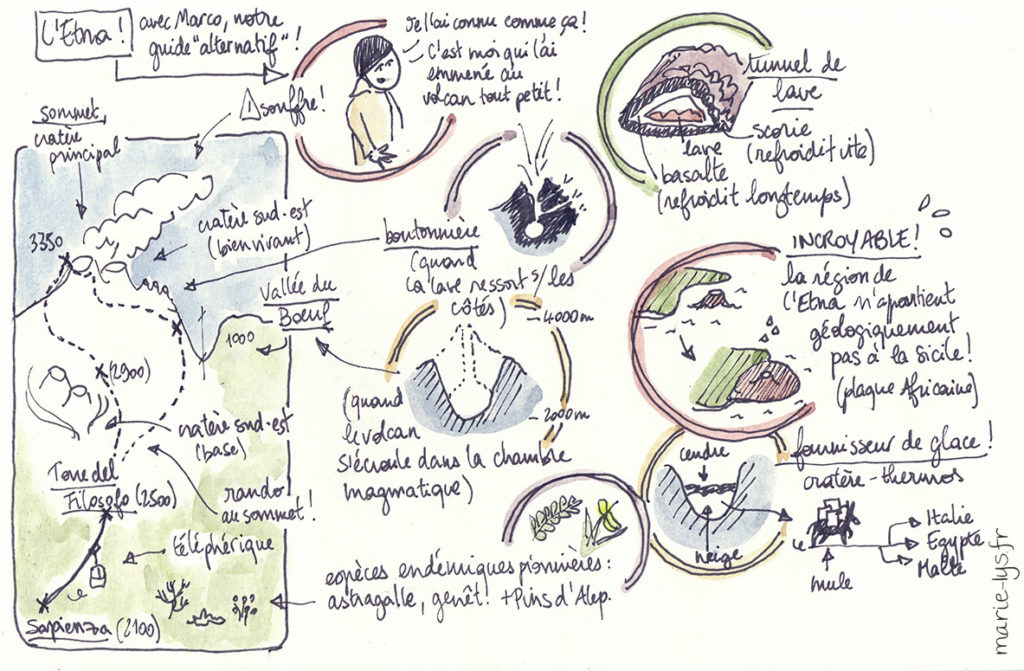 L'Etna!
avec Marco, notre
guide "alternatif"!
Je l'ai connu comme ça!
C'est moi qui l'ai
emmené au
volcan tout petit!
tunnel de
lave
scorie
(refroidit vite)
lave
basalte
(refroidit longtemps)
! souffre!
sommet,
cratère
principal
3350
cratère sud-est
(bien vivant)
boutonnière
(quand
la lave ressort s/ les
côtés)
Vallée du
Boeuf
1000
(2900)
cratère sud-est
(base)
Torre del
Filosofo (2500)
rando
au sommet!
téléphérique
Sapienza (2100)
4000m
2000m
(quand
le volcan
s'écroule dans la chambre
magmatique)
INCROYABLE!
la région de
l'Etna n'apartient
géologiquement
pas à la Sicile!
(plaque Africaine)
fournisseur de glace!
cratère-thermos
cendre
neige
mule
Italie
Egypte
Malte
espèces endémiques pionnières:
astragalle, genêt! + Pins d'Alep.
marie-lys.fr